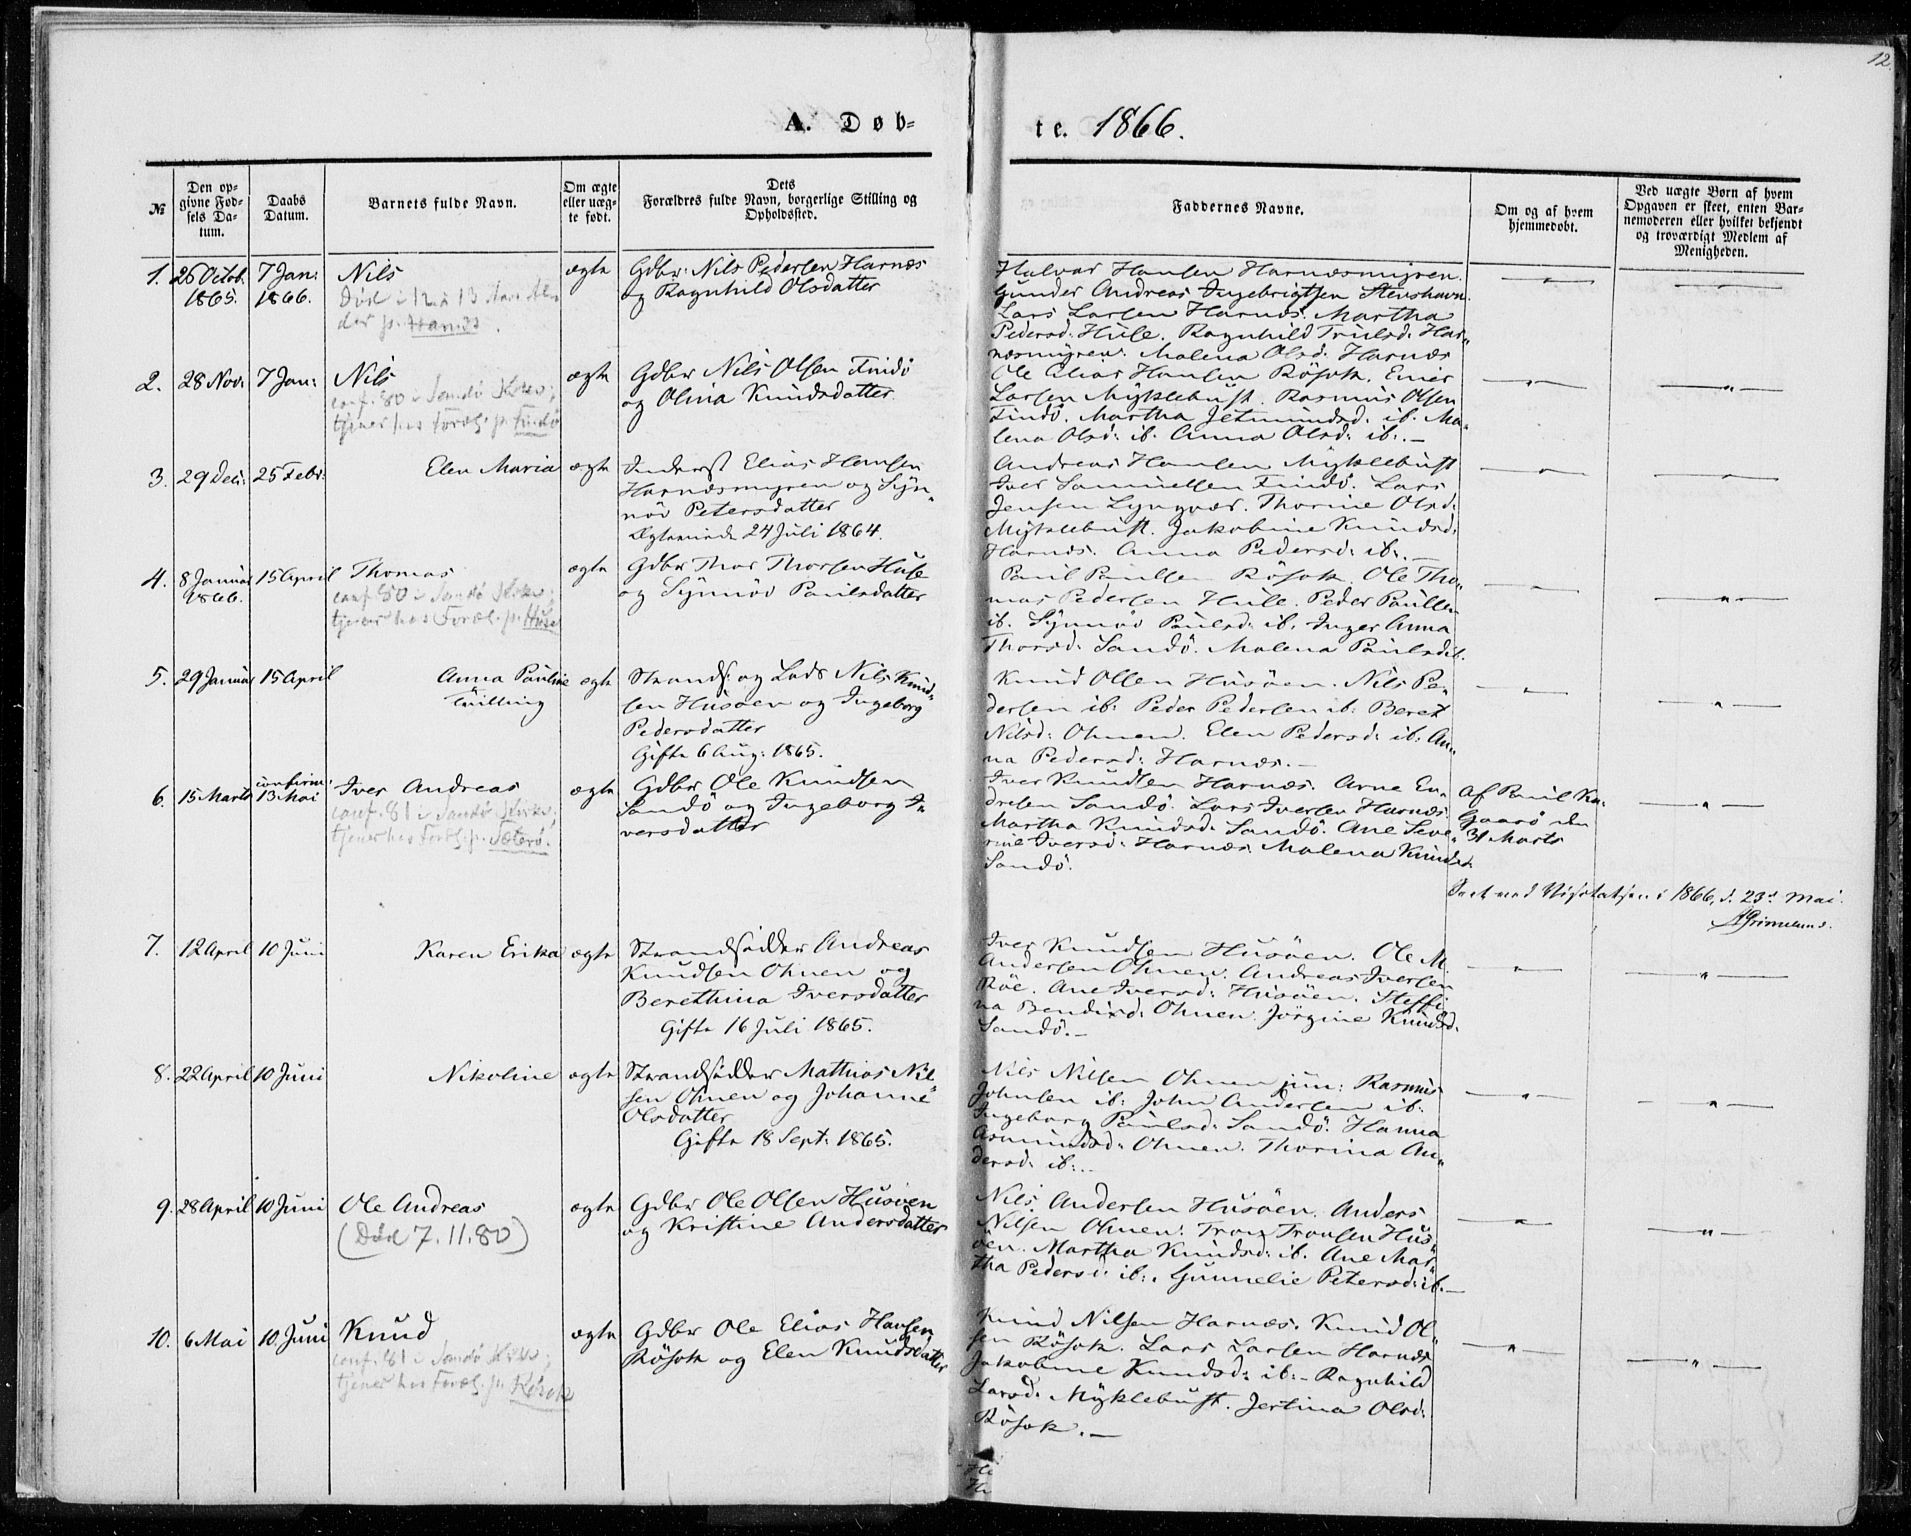 12.
A. Døb-
te. 1866.
№
Den op-
givne Fød-
sels Da-
tum.
Daabs
Datum.
Barnets fulde Navn.
Om ægte
eller uæg-
te født.
Dets
Forældres fulde Navn, borgerlige Stilling og
Opholdssted.
Faddernes Navne.
Om og af hvem
hjemmedøbt.
Ved uægte Børn af hvem
Opgaven er skeet, enten Bar-
nemoderen eller hvilket bekjendt
og troværdigt Medlem af
Menigheden.
1. 26 Octob. 1865. 7 Jan: 1866.
Nils
Død i 12 à 13 Aars Al-
der p.
ægte
Gdbr: Nils Pedersen Harnæs
og Ragnhild Olsdatter
Halvor Hansen Harnæsmyren.
Gunder Andreas Ingebrigtsen Stenshavn.
Lars Larsen Harnæs. Martha
Pedersd: Huse. Ragnhild Trulsd: Har-
næsmyren. Malena Olsd: Harnæs
2. 28 Nov: 7 Jan:
Nils
conf. 80 i Sandø Kirke;
tjener hos Foræl. p. Findø
ægte
Gdbr Nils Olsen Findö
og Olina Knudsdatter
Ole Elias Hansen Rösok. Enier
Larsen Myklebust. Rasmus Olsen
Findö. Martha Jetmundsd. ib. Ma-
lena Olsd: ib. Anna Olsd: ib:.-
3. 29 Dec: 25 Febr:
Elen Maria
ægte
Inderst Elias Hansen
Harnæsmyren og Syn-
növ Petersdatter
Ægteviede 24 Juli 1864.
Andreas Hansen Myklebust
Iver Samuelsen Findö. Lars
Jensen Lyngvær. Thorine Olsd:
Myklebust. Jakobine Knudsd:
Harnæs. Anna Pedersd: ib:.-
4. 8 Januar 1866. 15 April
Thomas
conf. 80 i Sandø Kirke;
tjener hos Foræl. p. Huse
ægte
Gdbr Thor Thorsen Huse
og Synnöv Paulsdatter
Paul Paulsen Rösok. Ole Tho-
mas Pedersen Huse. Peder Paulsen
ib. Synnöv Paulsd: ib. Inger Anna
Thorsd: Sandö. Malena Paulsd ib.
5. 29 Januar 15 April
Anna Pauline
Tvilling
ægte
Strands: og Lods Nils Knud-
sen Husöen og Ingeborg
Pedersdatter
Gifte 6 Aug: 1865.
Knud Olsen Husöen. Nils Pe-
dersen ib: Peder Pedersen ib: Beret
Nilsd: Ohnen. Elen Pedersd: ib: An-
na Pedersd: Harnæs.-
6. 15 Marts confirm: 13 Mai
Iver Andreas
conf. 81 i Sandø Kirke;
tjener hos Foræl. p. Sæterø.
ægte
Gdbr Ole Knudsen
Sandö og Ingeborg I-
versdatter
Iver Knudsen Harnæs. Arne En-
dresen Sandö. Lars Iversen Harnæs.
Martha Knudsd. Sandö. Ane Seve-
rine Iversd: Harnæs. Malena Knudsd.
Sandö.
Af Paul Kn:
Gaasö den
31 Marts
Seet ved Visitatsen i 1866, d. 23d Mai.
Grimelund.
7. 12 April 10 Juni
Karen Erika
ægte
Strandsidder Andreas
Knudsen Ohnen og
Berethina Iversdatter
Gifte 16 Juli 1865.
Iver Knudsen Husöen. Ole M.
Andersen Ohnen. Andreas Iversen
Röe. Ane Iversd: Husöen. Steffi-
na Bendixd: Ohnen. Jörgine Knudsd.
Sandö.-
8. 22 April 10 Juni
Nikoline
ægte
Strandsidder Mathias Nil-
sen Ohnen og Johanne
Olsdatter
Gifte 18 Sept: 1865.
Nils Nilsen Ohnen jun: Rasmus
Johnsen ib: John Andersen ib:
Ingeborg Paulsd: Sandö. Hanna
Asmundsd: Ohnen. Thorina An-
dersd: ib:.-
9. 28 April 10 Juni
Ole Andreas
(Død 7. 11. 80)
ægte
Gdbr Ole Olsen Husöen
og Kristine Andersdatter
Nils Andersen Husöen. Anders
Nilsen Ohnen. Tron Tronsen Hus-
öen. Martha Knudsd: ib. Ane Mar-
tha Pedersd: ib:. Gunnelie Petersd: ib.-
10. 6 Mai 10. Juni
Knud
conf. 81 i Sandø Kirke;
tjener hos Foræl. p. Røsok
ægte
Gdbr Ole Elias Hansen
Rösok og Elen Knudsdatter
Knud Nilsen Harnæs. Knud Ol-
sen Rösok. Lars Larsen Harnæs
Jakobine Knudsd: ib:- Ragnhild
Larsd: Myklebust. Jertina Olsd:
Rösok.-